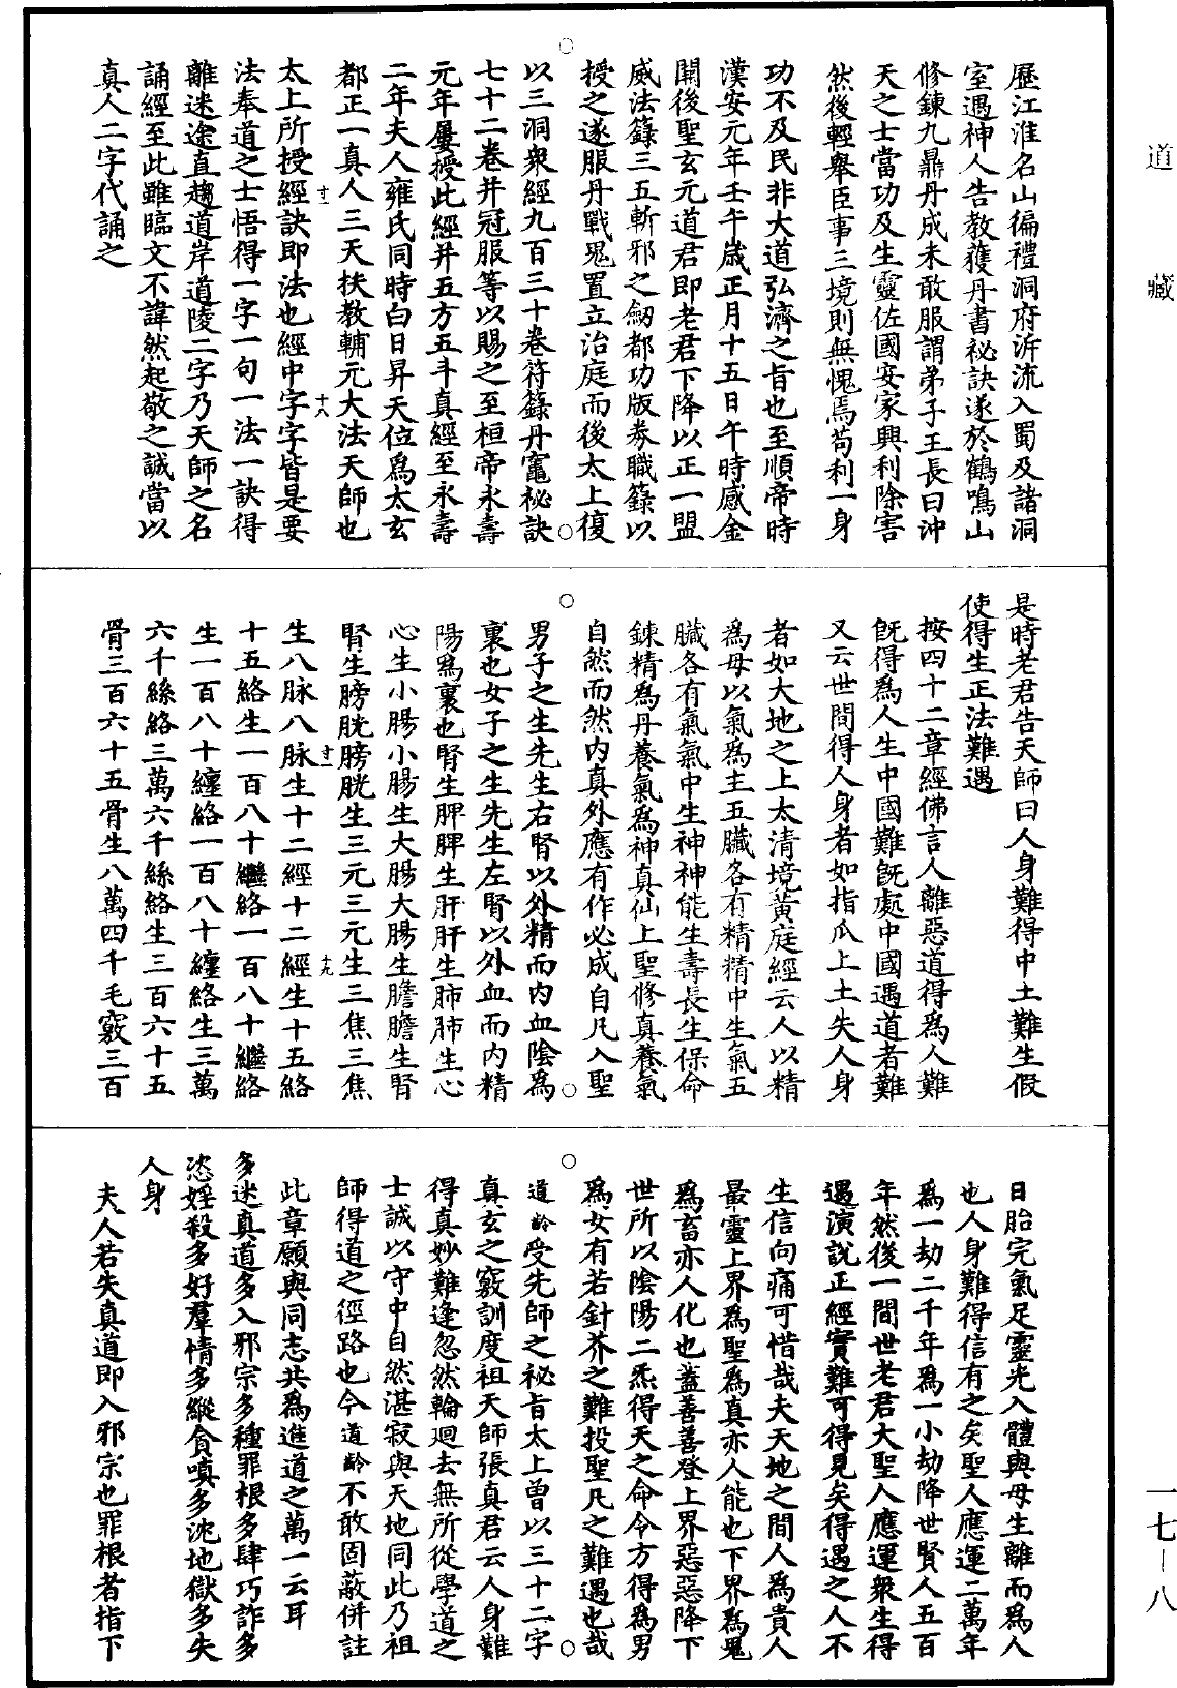 歷江淮名山徧禮洞府泝流入蜀及諸洞
室遇神人告教獲丹書祕訣遂於鶴鳴山
修鍊九鼎丹成未敢服謂弟子王長曰沖
天之士當功及生靈佐國安家興利除害
然後輕舉臣事三境則無愧焉苟利一身
功不及民非大道弘濟之旨也至順帝時
漢安元年壬午歲正月十五日午時感金
闕後聖玄元道君即老君下降以正一盟
威法籙三五斬邪之劒都功版券職籙以
授之遂服丹戰鬼置立治庭而後太上復
以三洞衆經九百三十卷符籙丹竈祕訣
七十二卷并冠服等以賜之至桓帝永壽
元年屢授此經并五方五斗真經至永壽
二年夫人雍氏同時白日昇天位爲太玄
都正一真人三天扶教輔元大法天師也
太上所授經訣即法也經中字字皆是要
法奉道之士悟得一字一句一法一訣得
離迷途直趨道岸道陵二字乃天師之名
誦經至此雖臨文不諱然起敬之誠當以
真人二字代誦之
是時老君告天師曰人身難得中土難生假
使得生正法難遇
按四十二章經佛言人離惡道得爲人難
旣得爲人生中國難旣處中國遇道者難
又云世間得人身者如指爪上土失人身
者如大地之上太清境黃庭經云人以精
爲母以氣爲主五臟各有精精中生氣五
臟各有氣氣中生神神能生壽長生保命
鍊精爲丹養氣爲神真仙上聖修真養氣
自然而然內真外應有作必成自凡入聖
男子之生先生右腎以外精而內血陰爲
裏也女子之生先生左腎以外血而內精
陽爲裏也腎生脾脾生肝肝生肺肺生心
心生小腸小腸生大腸大腸生膽膽生腎
腎生膀胱膀胱生三元三元生三焦三焦
生八脉八脉生十二經十二經生十五絡
十五絡生一百八十繼絡一百八十繼絡
生一百八十纏絡一百八十纏絡生三萬
六千絲絡三萬六千絲絡生三百六十五
骨三百六十五骨生八萬四千毛竅三百
日胎完氣足靈光入體與母生離而爲人
也人身難得信有之矣聖人應運二萬年
爲一劫二千年爲一小劫降世賢人五百
年然後一間世老君大聖人應運衆生得
遇演說正經實難可得見矣得遇之人不
生信向痛可惜哉夫天地之間人爲貴人
最靈上界爲聖爲真亦人能也下界爲鬼
爲畜亦人化也蓋善善登上界惡惡降下
世所以陰陽二炁得天之命令方得爲男
爲女有若針芥之難投聖凡之難遇也哉
道齡受先師之祕旨太上曾以三十二字
真玄之竅訓度祖天師張真君云人身難
得真妙難逢忽然輪迴去無所從學道之
士誠以守中自然湛寂與天地同此乃祖
師得道之徑路也今道齡不敢固蔽併註
此章願與同志共爲進道之萬一云耳
多迷真道多入邪宗多種罪根多肆巧詐多
恣婬殺多好羣情多縱貪嗔多沈地獄多失
人身
夫人若失真道即入邪宗也罪根者指下
道藏
一七－八
十八
十九